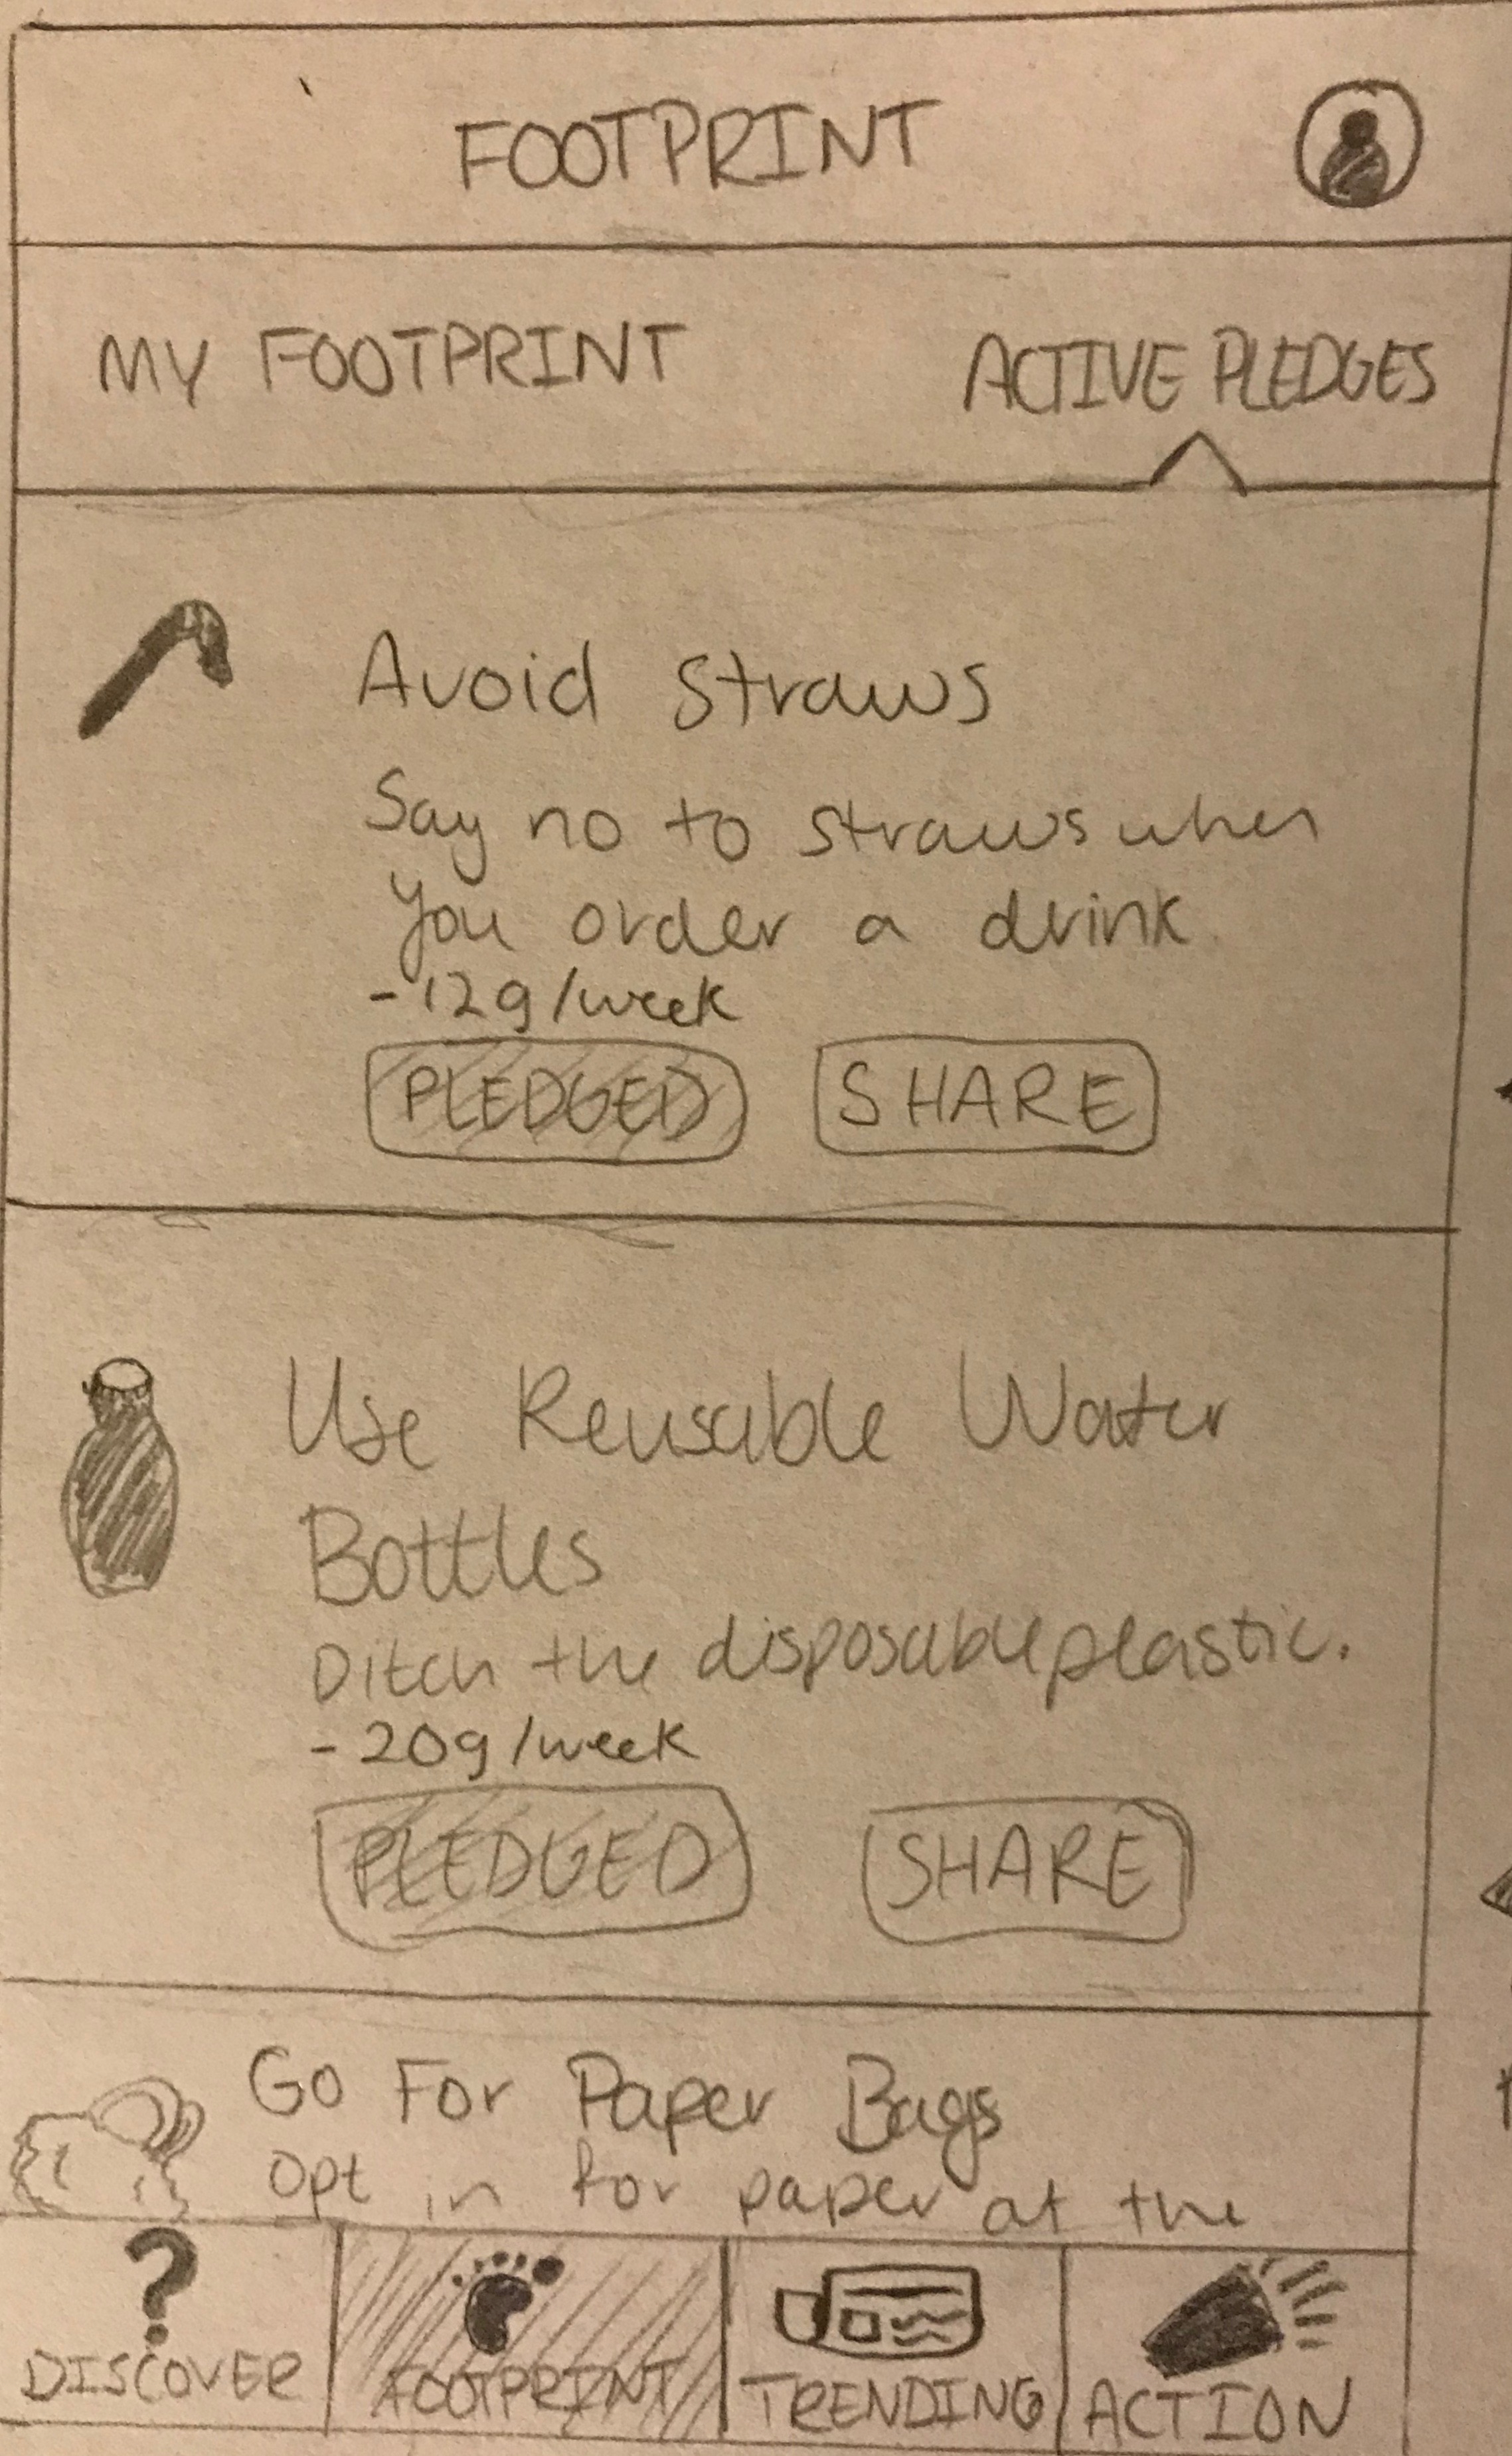 FOOTPRINT
MY FOOTPRINT ACTIVE PLEDGES
Avoid straws
Say no to straws when
you order a drink.
-12g/week
PLEDGED SHARE
Use Reusable Water
Bottles
Ditch the disposable plastic.
-20g/week
PLEDGED SHARE
Go For Paper Bags
Opt in for paper at the
DISCOVER FOOTPRINT TRENDING ACTION